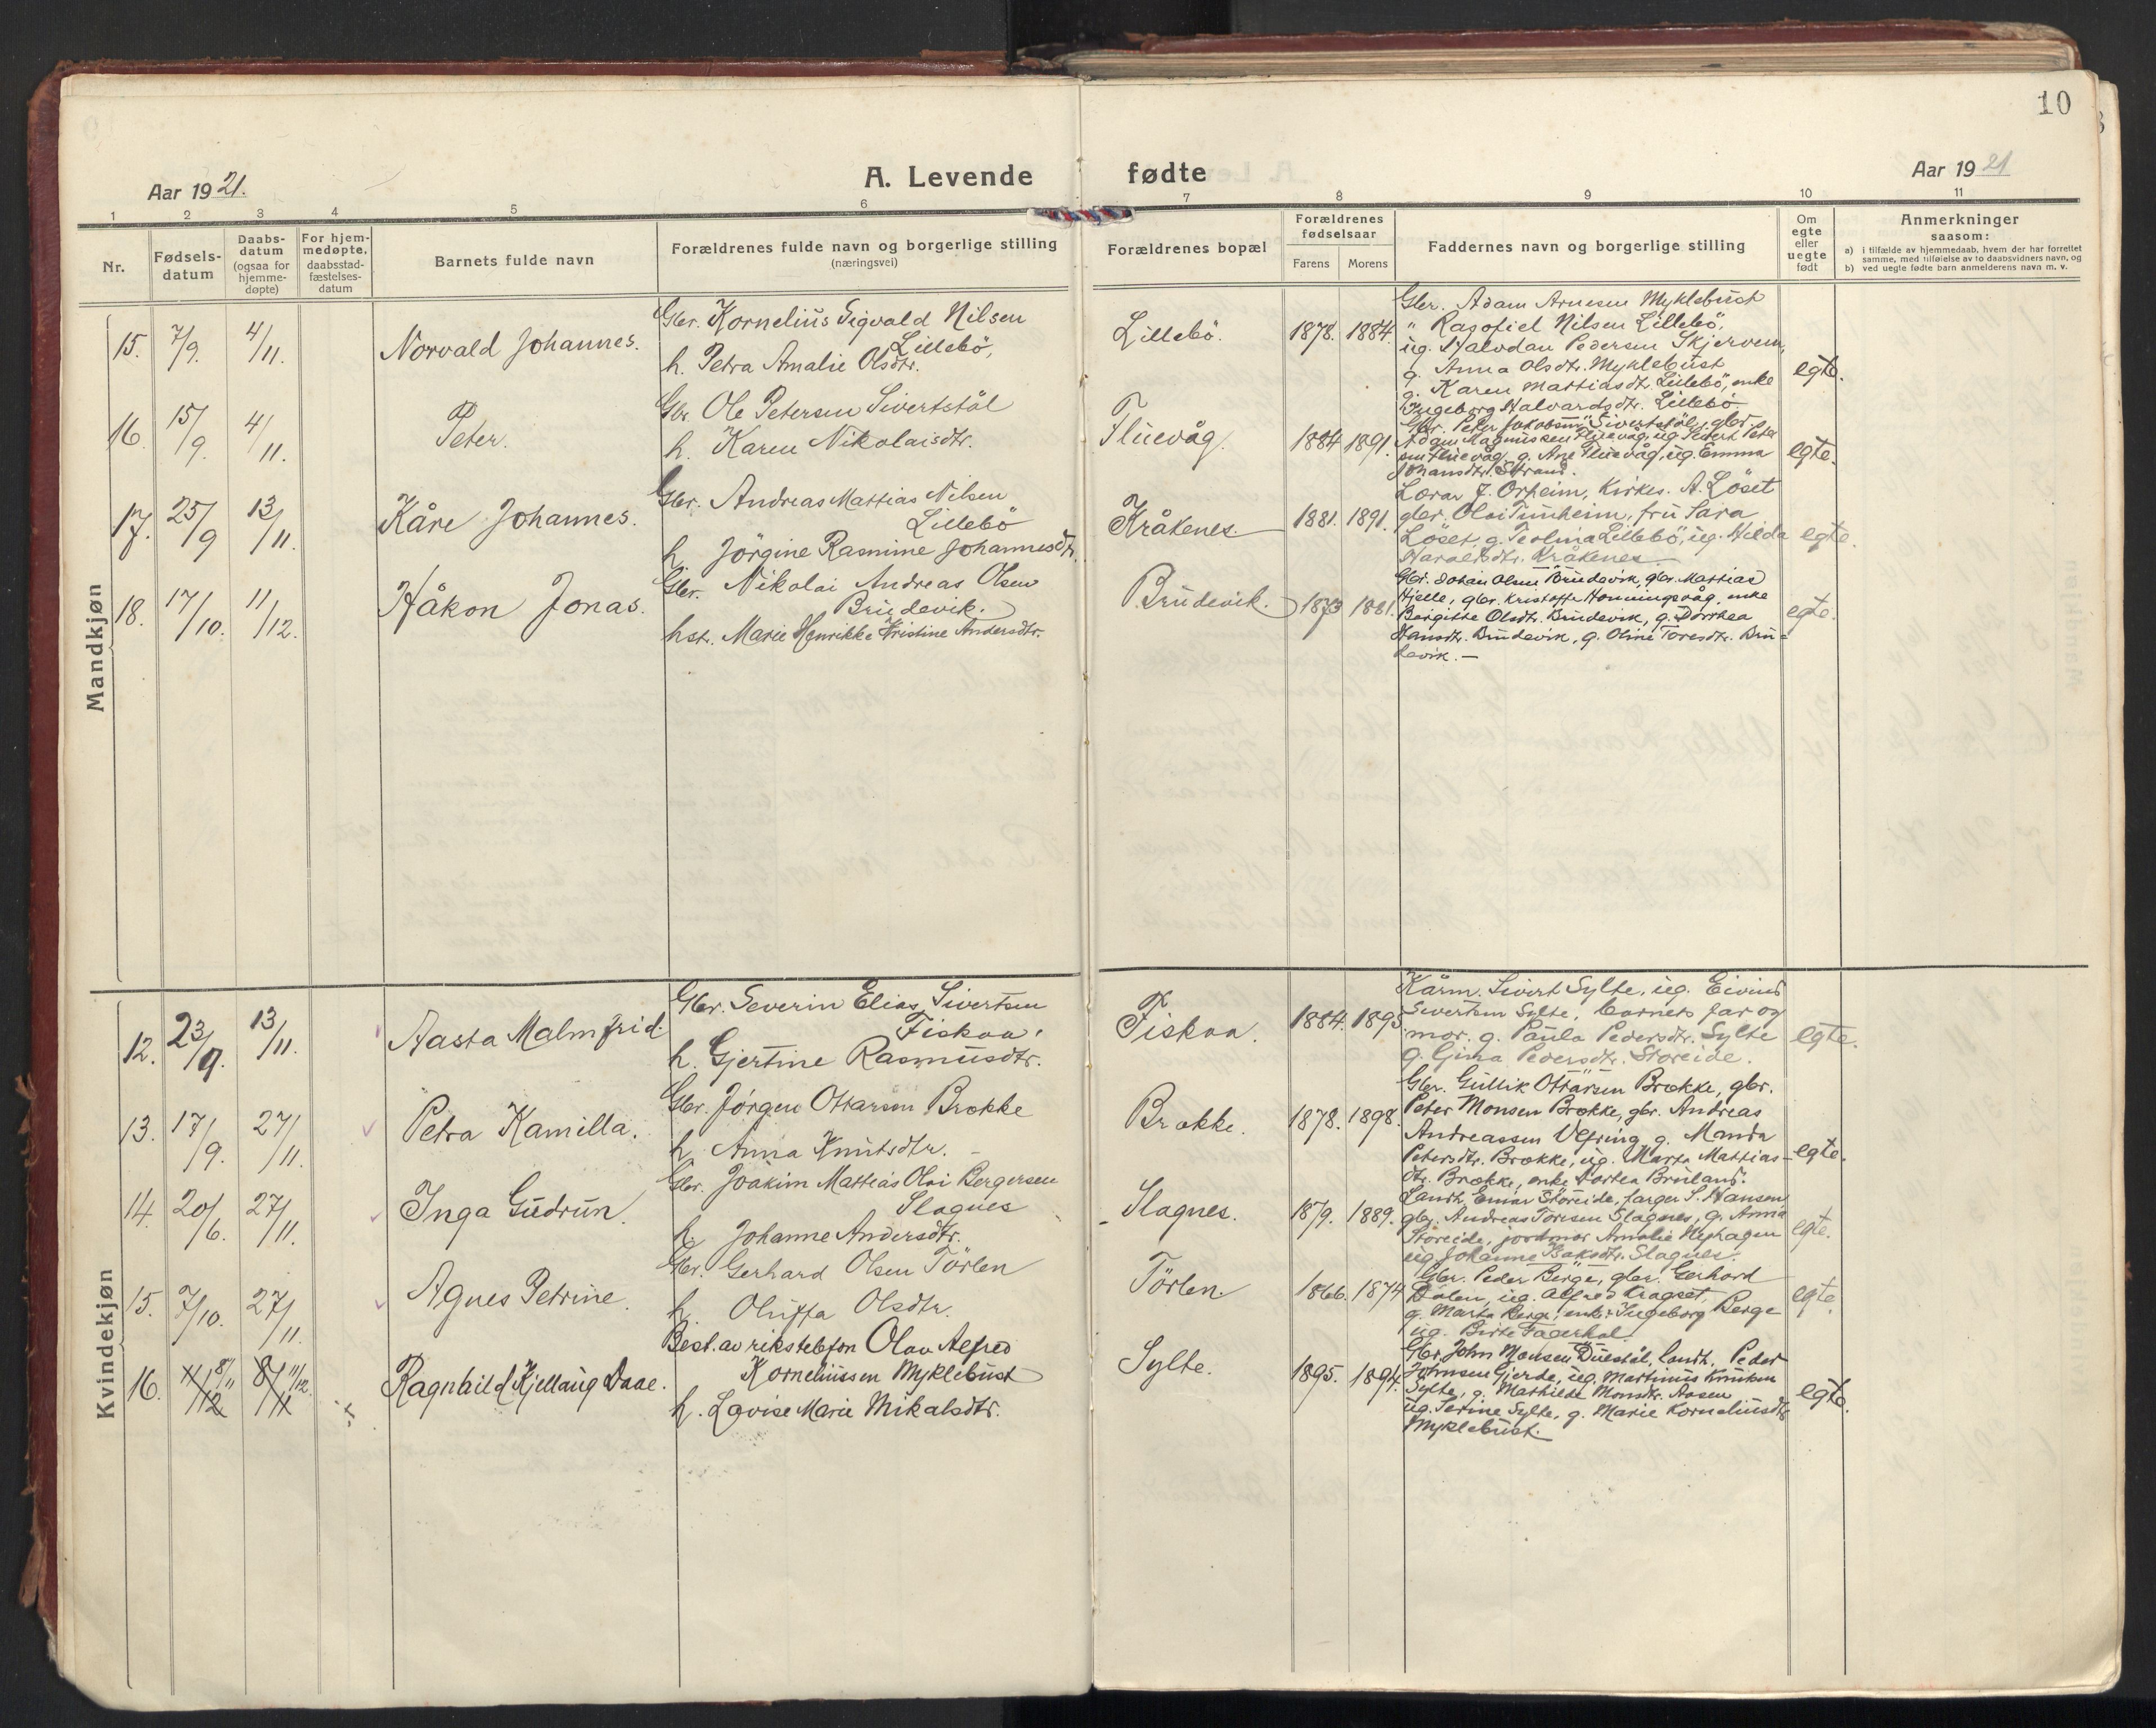 10
Aar 1921.
A. Levende fødte
Aar 1921
1 2 3 4 5 6 7 8 9 10 11
Nr.
Fødsels-datum
Daabs-datum (ogsaa for hjemme-døpte)
For hjem-medøpte, daabsstad-fæstelses-datum
Barnets fulde navn
Forældrenes fulde navn og borgerlige stilling (næringsvei)
Forældrenes bopæl
Forældrenes fødselsaar
Farens Morens
Faddernes navn og borgerlige stilling
Om egte eller uegte født
Anmerkninger saasom:
a) i tilfælde av hjemmedaab, hvem der har forrettet samme, med tilføielse av to daabsvidners navn, og
b) ved uegte fødte barn anmelderens navn m. v.
Mandkjøn
15. 7/9. 4/11. Norvald Johannes.
Gbr. Kornelius Sigvald Nilsen
Lillebö,
h. Petra Amalie Olsdtr.
Lillebö. 1878. 1884.
Gbr. Adam Arnesen Myklebust
" Rasofiel Nilsen Lillebö,
ug. Halvdan Pedersen Skjervem,
g. Anna Olsdtr. Myklebust
g. Karen Mattiasdtr. Lillebö, enke
Ingeborg Halvardsdtr. Lillebö.
egte.
16. 15/9. 4/11. Peter.
Gbr. Ole Petersen Sivertstöl
h. Karen Nikolaisdtr.
Fluevåg. 1884 1891.
Gbr. Peter Jakobsen Sivertstöl, gbr.
Adam Magnussen Fluevåg, ug. Sivert Peter
sen Fluevåg, g. Ane Fluevåg, ug. Emma
Johansdtr. Strand.
egte.
17. 25/9 13/11. Kåre Johannes.
Gbr. Andreas Mattias Nilsen
Lillebö
h. Jörgine Rasmine Johannesdtr.
Kråkenes. 1881. 1891.
Lærar J. Orheim, Kirkes. A. Löset
gbr. Olai Tunheim, fru Sara
Löset, g. Teolina Lillebö, ug. Hilda
Haraldsdtr. Kråkenes
egte.
18. 17/10. 11/12. Håkon Jonas.
Gbr. Nikolai Andreas Olsen
Brudevik.
hst. Marie Henrikke Kristine Andersdtr.
Brudevik. 1873 1881.
Gbr. Johan Olsen Brudevik, gbr. Mattias
Hjelle, gbr. Kristoffe Honningsvåg, enke
Bergitte Olsdtr. Brudevik, g. Dorthea
Hansdtr. Brudevik, g. Oline Toresdtr. Bru=
devik. —
egte.
Kvindekjøn
12. 23/9. 13/11. Aasta Malmfrid.
Gbr. Severin Elias Sivertsen
Fiskaa.
h. Gjertine Rasmusdtr.
Fiskaa. 1884. 1895
Kårm. Sivert Sylte, ug. Eivind
Sivertsen Sylte, barnets far og
mor. g. Paula Pedersdtr. Sylte
g. Gina Pedersdtr. Storeide.
egte.
13. 17/9. 27/11. Petra Kamilla.
Gbr. Jörgen Ottarsen Brekke
h. Anna Knutsdtr.
Brekke. 1878. 1898.
Gbr. Gullik Ottarsen Brekke, gbr.
Peter Monsen Brekke, gbr. Andreas
Andreassen Ulfsing, g. Manda
Petersdtr. Brekke, ug. Marta Mattias-
dtr. Brekke, enke Dortea Bruland.
egte.
14. 20/6. 27/11. Inga Gudrun.
Gbr. Joakim Mattias Olai Bergersen
Slagnes
h. Johanne Andersdtr.
Slagnes. 1879. 1889.
Landh. Einar Storeide, farger S. Hansen
gbr. Andreas Toresen Slagnes, g. Anna
Storeide, jordmor Amalie Myhagen
ug. Johanne Isaksdtr. Slagnes.
egte.
15. 7/10. 27/11. Agnes Petrine.
Gbr. Gerhard Olsen Törlen
h. Oluffa Olsdtr.
Törlen. 1866. 1874
Gbr. Peder Berge, gbr. Gerhard
Dalen, ug. Alfred Kragset,
g. Marta Berge, enke Ingeborg Berge
ug. Birte Fagerhol.
egte.
16. 8/11 11/12. Ragnhild Kjellaug Daae.
Best. av rikstelefon Olav Alfred
Korneliussen Myklebust
h. Lovise Marie Mikalsdtr.
Sylte. 1895. 1894.
Gbr. John Monsen Duestöl, landh. Peder
Johnsen Gjerde, ug. Martinus Knutsen
Sylte, g. Mathilde Monsdtr. Aasen
ug. Serine Sylte, g. Marie Korneliusdtr
Myklebust.
egte.